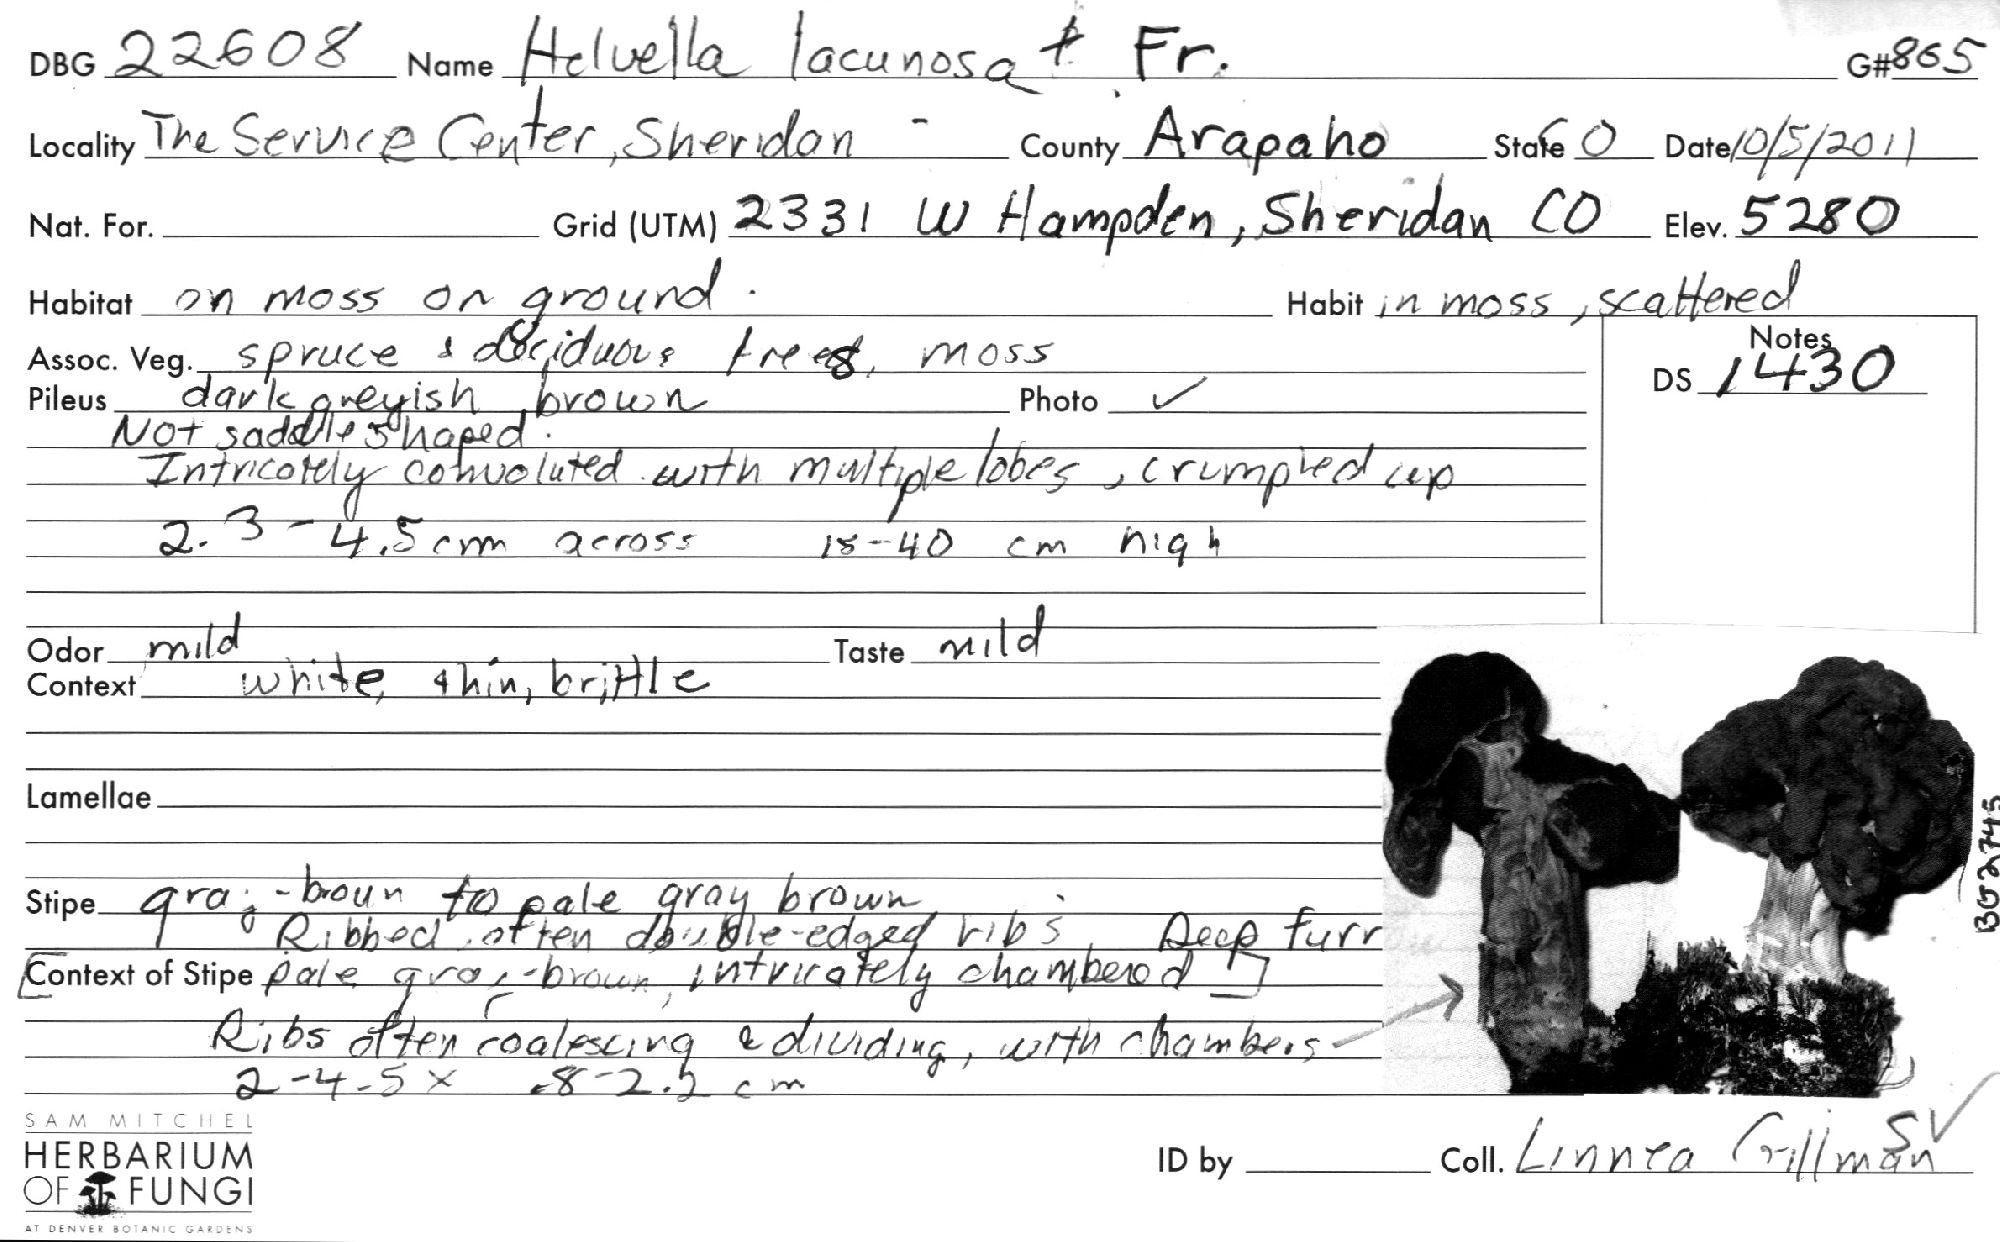 DBG 22608 Name Helvella lacunosa Fr. G# 865
Locality The Service Center, Sheridan County Arapaho State CO Date 10/5/2011
Nat. For. Grid (UTM) 2331 W Hampden, Sheridan CO Elev. 5280
Habitat on moss on ground. Habit in moss, scattered
Assoc. Veg. spruce & deciduous trees, moss
Notes
DS 1430
Pileus dark greyish brown Photo ✓
Not saddle shaped.
Intricately convoluted with multiple lobes, crumpled up
2.3 - 4.5 cm across 18-40 cm high
Odor mild Taste mild
Context white, thin, brittle
Lamellae
Stipe gray-boun to pale gray brown
Ribbed, often double-edged ribs, Deep furr
[Context of Stipe pale gray-brown, intricately chambered]
Ribs often coalescing & dividing, with chambers
2-4.5 x .8-2.2 cm
BG2745
SAM MITCHEL
HERBARIUM
OF FUNGI
AT DENVER BOTANIC GARDENS
ID by Coll. Linnea Gillman
SV